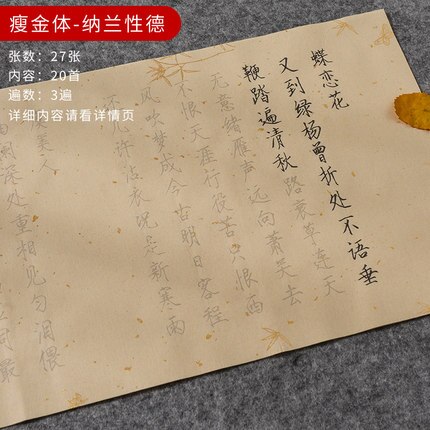 瘦金体-纳兰性德
张数：27张
内容：20首
遍数：3遍
详细内容请看详情页
蝶恋花
又到绿杨曾折处不语垂
鞭踏遍清秋路衰草连天
无意绪雁声远向萧关去
不恨天涯行役苦只恨西
风吹梦成今古明日客程
几许沾衣况是新寒雨
美人
深处重相见匀泪偎
同最